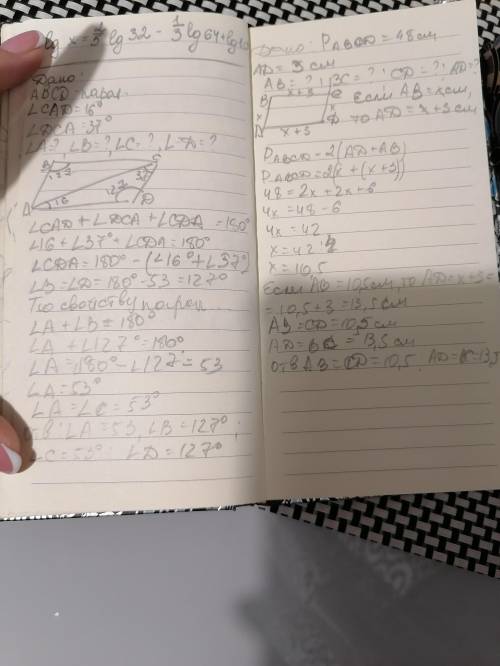 lg x = 1/5 lg 32 - 1/3 lg 64 + lg
Дано:
ABCD - парал.
∠CAD = 16°
∠DCA = 37°
∠A = ?, ∠B = ?, ∠C = ?, ∠D = ?
B C
37
A 16 D
∠CAD + ∠DCA + ∠CDA = 180°
∠16 + ∠37° + ∠CDA = 180°
∠CDA = 180° - (∠16° + ∠37°)
∠B = ∠D = 180° - 53 = 127°
По свойству парал.
∠A + ∠B = 180°
∠A + ∠127° = 180°
∠A = 180° - ∠127° = 53
∠A = 53°
∠A = ∠C = 53°
отв: ∠A = 53, ∠B = 127°;
∠C = 53°; ∠D = 127°
Дано: PABCD = 48 см
AD = 3 см
AB = ? BC = ? CD = ? AD = ?
B x+3 C
Если AB = x см,
x x
A x+3 D
то AD = x+3 см
PABCD = 2(AD + AB)
PABCD = 2(x + (x+3))
48 = 2x + 2x + 6
4x = 48 - 6
4x = 42
x = 42:4
x = 10,5
Если AB = 10,5 см, то AD = x+3 =
= 10,5 + 3 = 13,5 см
AB = CD = 10,5 см
AD = BC = 13,5 см
отв AB = CD = 10,5. AD = BC = 13,5